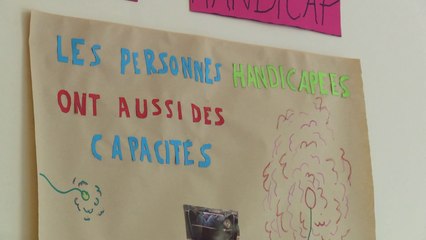 HANDICAP
LES PERSONNES HANDICAPÉES
ONT AUSSI DES
CAPACITÉS